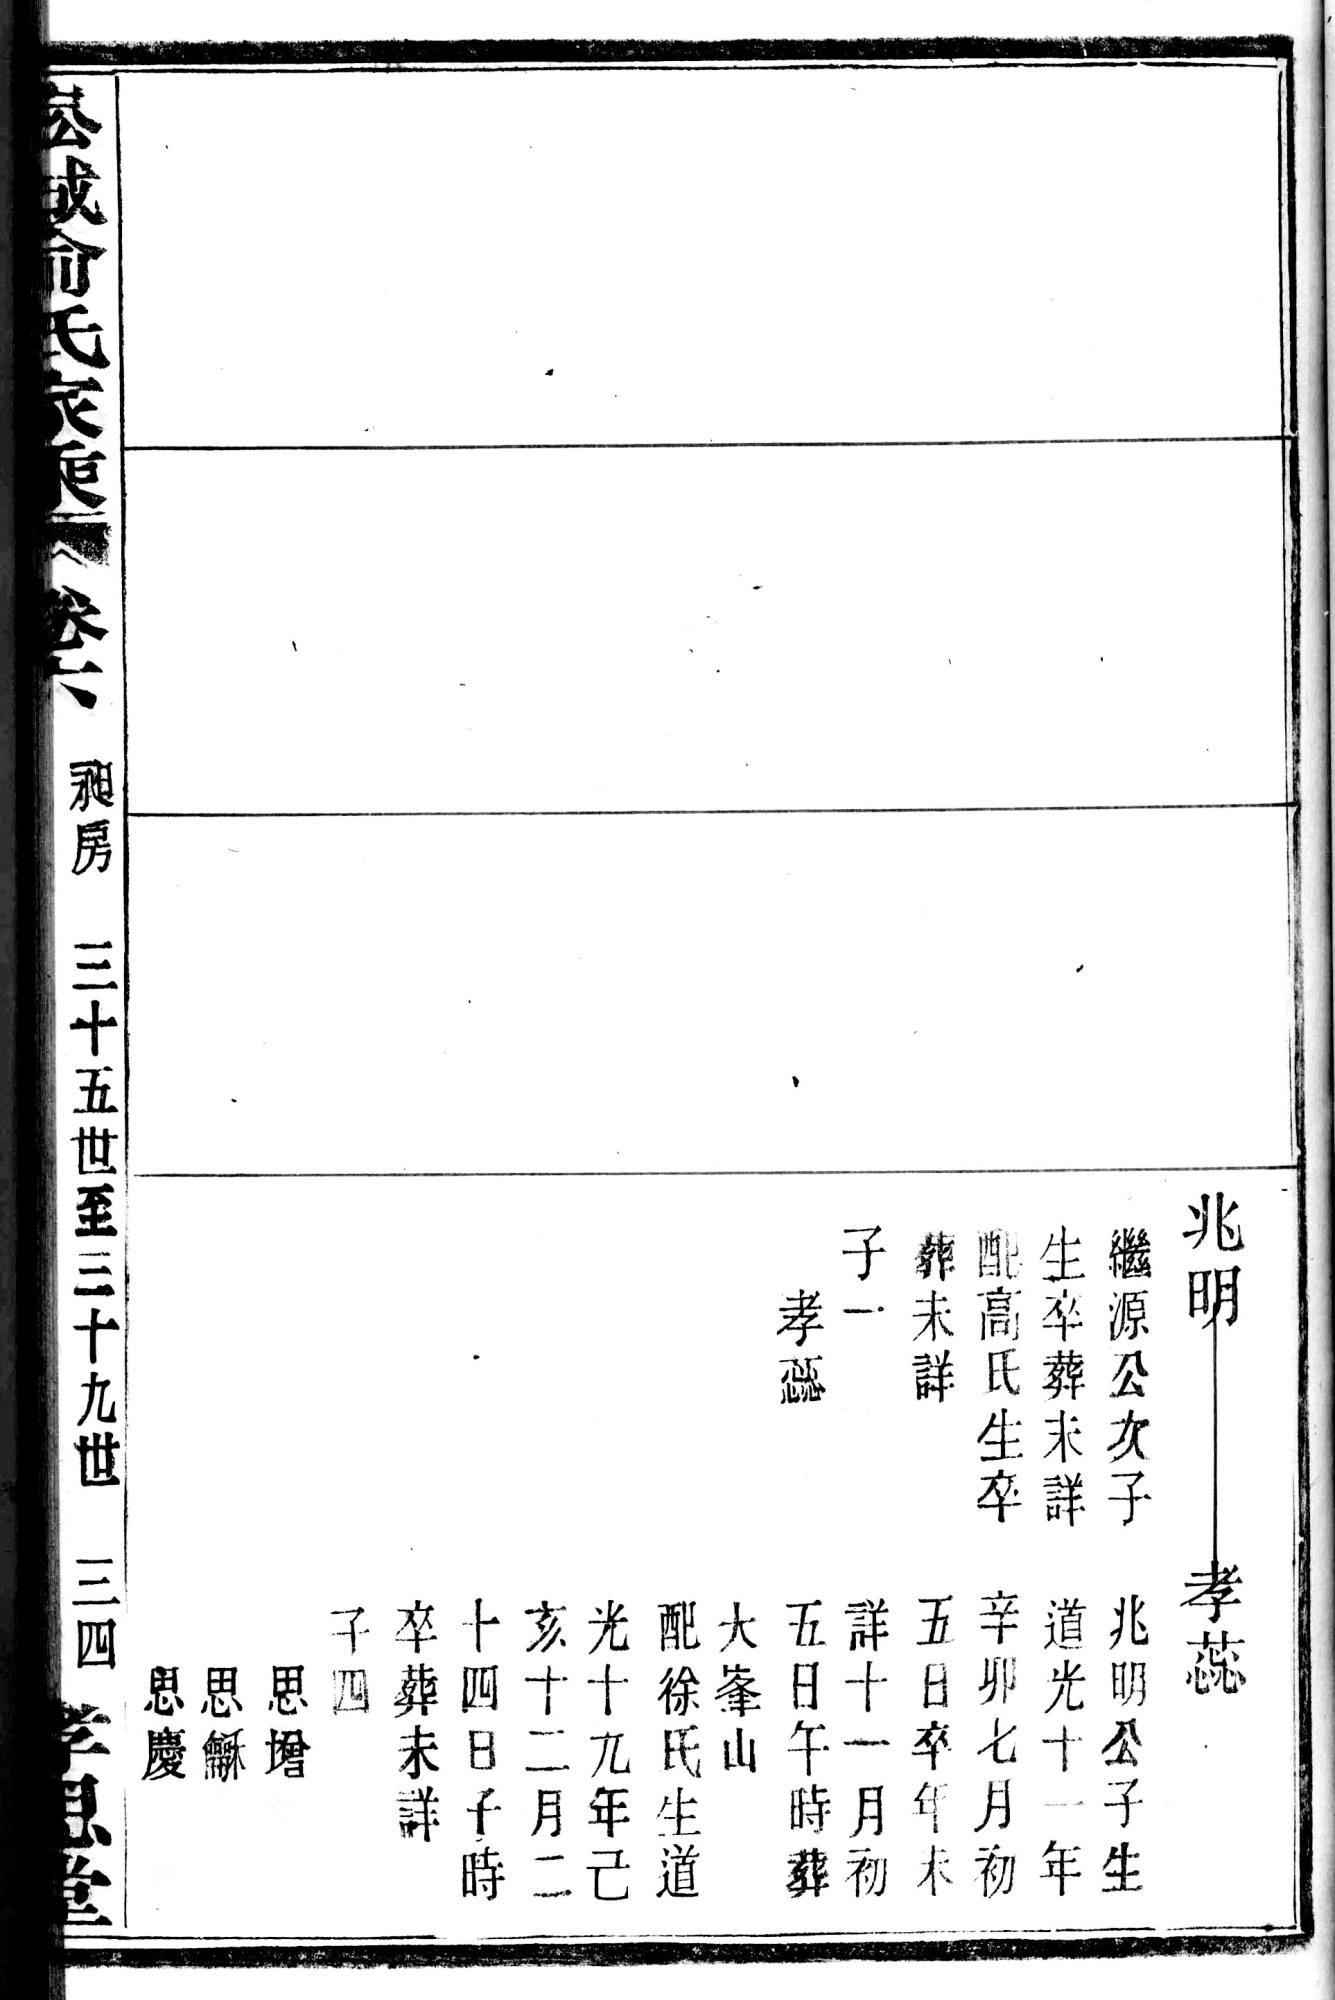 兆明
繼源公次子
生卒葬未詳
配高氏生卒
葬未詳
子一
孝蕊
孝蕊
兆明公子生
道光十一年
辛卯七月初
五日卒年未
詳十一月初
五日午時葬
大峯山
配徐氏生道
光十九年己
亥十二月二
十四日子時
卒葬未詳
子四
思增
思龢
思慶
崧城俞氏家乘 卷六 昶房 三十五世至三十九世 三四 孝思堂